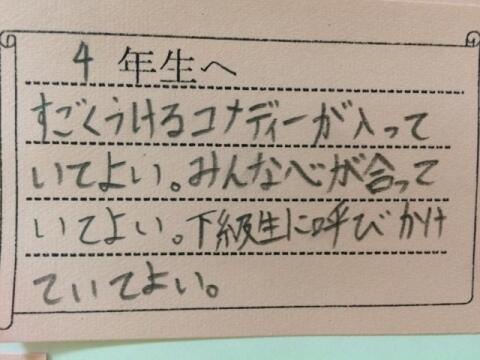 4 年生へ
すごくうけるコナディーが入って
いてよい。みんな心が合って
いてよい。下級生に呼びかけ
ていてよい。